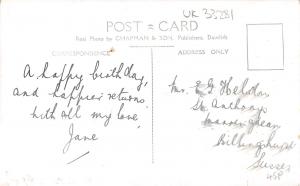 UK 33281
POST CARD
Real Photo by CHAPMAN & SON, Publishers, Dawlish
CORRESPONDENCE
ADDRESS ONLY
A happy birthday,
and happier returns.
with all my love
Jane
Mrs. E G Heldon
St. Anthonys
Billingshurst
Sussex
45P